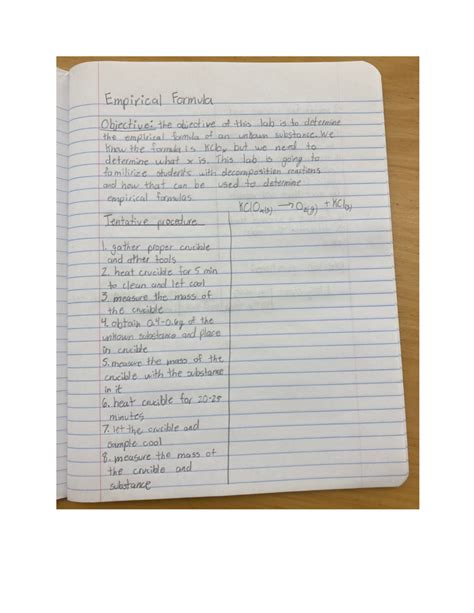 Empirical Formula
Objective: the objective of this lab is to determine
the empirical formula of an unkown substance. We
know the formula is KClOx, but we need to
determine what x is. This lab is going to
familirize students with decomposition reactions
and how that can be used to determine
empirical formulas.
KClOn(s) → O2(g) + KCl(s)
Tentative procedure
1. gather proper crucible
and other tools
2. heat crucible for 5 min
to clean and let cool
3. measure the mass of
the crucible
4. obtain 0.4-0.6g of the
unkown substance and place
in crucible
5. measure the mass of the
crucible with the substance
in it
6. heat crucible for 20-25
minutes
7. let the crucible and
sample cool
8. measure the mass of
the crucible and
substance